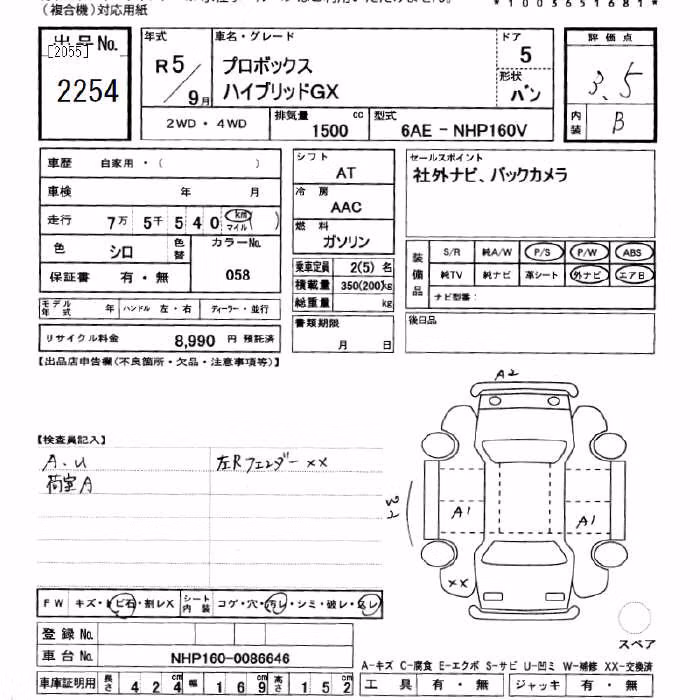 (複合機)対応用紙
*1003651681*
出品No.
[2055]
2254
年式
R5/9月
車名・グレード
プロボックス
ハイブリッドGX
ドア
5
形状
バン
評価点
3.5
内装
B
2WD・4WD
排気量
1500 cc
型式
6AE-NHP160V
車歴 自家用・( )
車検 年 月
走行 7万 5千 5 4 0 km マイル ( )
色 シロ 色替 カラーNo.
058
保証書 有・無
モデル年式 年 ハンドル 左・右 ディーラー・並行
リサイクル料金 8,990 円 預託済
シフト
AT
冷房
AAC
燃料
ガソリン
乗車定員 2(5) 名
積載量 350(200)kg
総重量 kg
書類期限
月 日
セールスポイント
社外ナビ、バックカメラ
装備品
S/R 純A/W P/S P/W ABS
純TV 純ナビ 革シート 外ナビ エアB
ナビ型番:
後日品
【出品店申告欄(不良箇所・欠品・注意事項等)】
【検査員記入】
A.U
荷室A
左Rフェンダー XX
A2
A1
A1
XX
FW キズ・ヒ石・割レX シート内装 コゲ・穴・汚レ・シミ・破レ・スレ
登録No.
車台No. NHP160-0086646
車庫証明用 長さ 4 2 4 cm 幅 1 6 9 cm 高さ 1 5 2 cm
スペア
A-キズ C-腐食 E-エクボ S-サビ U-凹ミ W-補修 XX-交換済
工具 有・無 ジャッキ 有・無